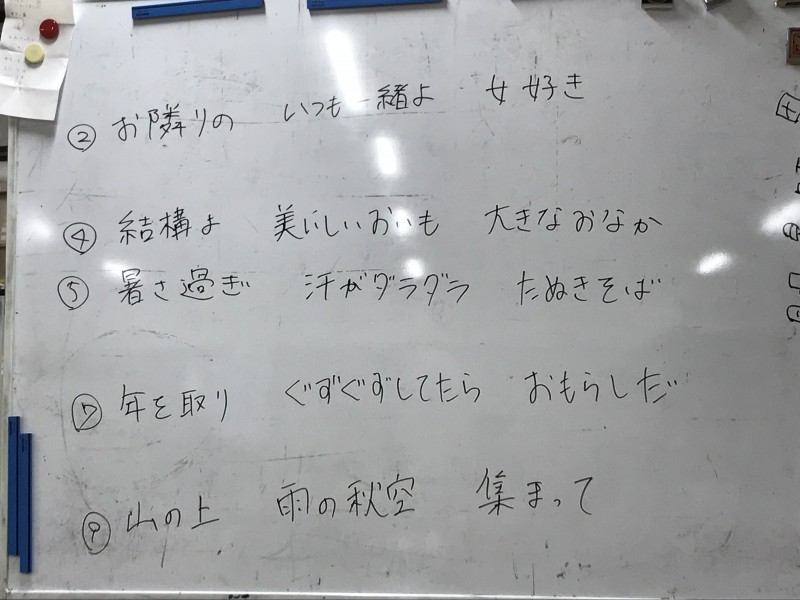 ② お隣りの いつも一緒よ 女好き
④ 結構よ 美いしいおいも 大きなおなか
⑤ 暑さ過ぎ 汗がダラダラ たぬきそば
⑦ 年を取り ぐずぐずしてたら おもらしだ
⑨ 山の上 雨の秋空 集まって